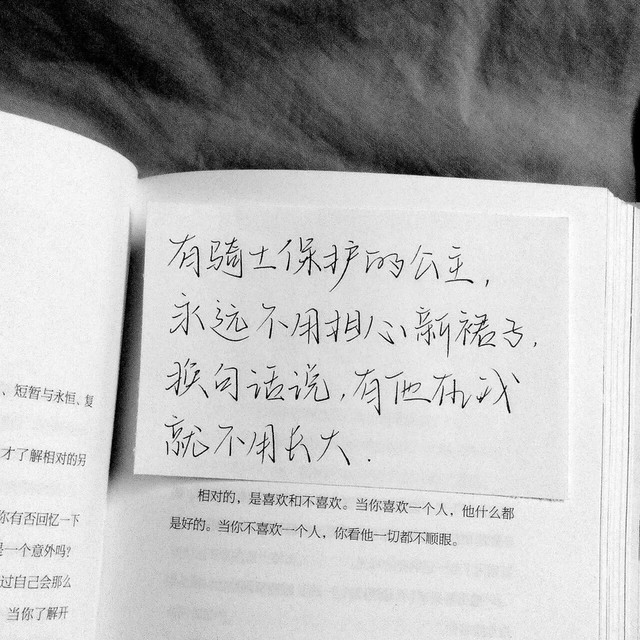 有骑士保护的公主,
永远不用担心新裙子,
换句话说,有他在我
就不用长大.
相对的，是喜欢和不喜欢。当你喜欢一个人，他什么都
是好的。当你不喜欢一个人，你看他一切都不顺眼。
、短暂与永恒、复
才了解相对的另
你有否回忆一下
是一个意外吗？
过自己会那么
当你了解开